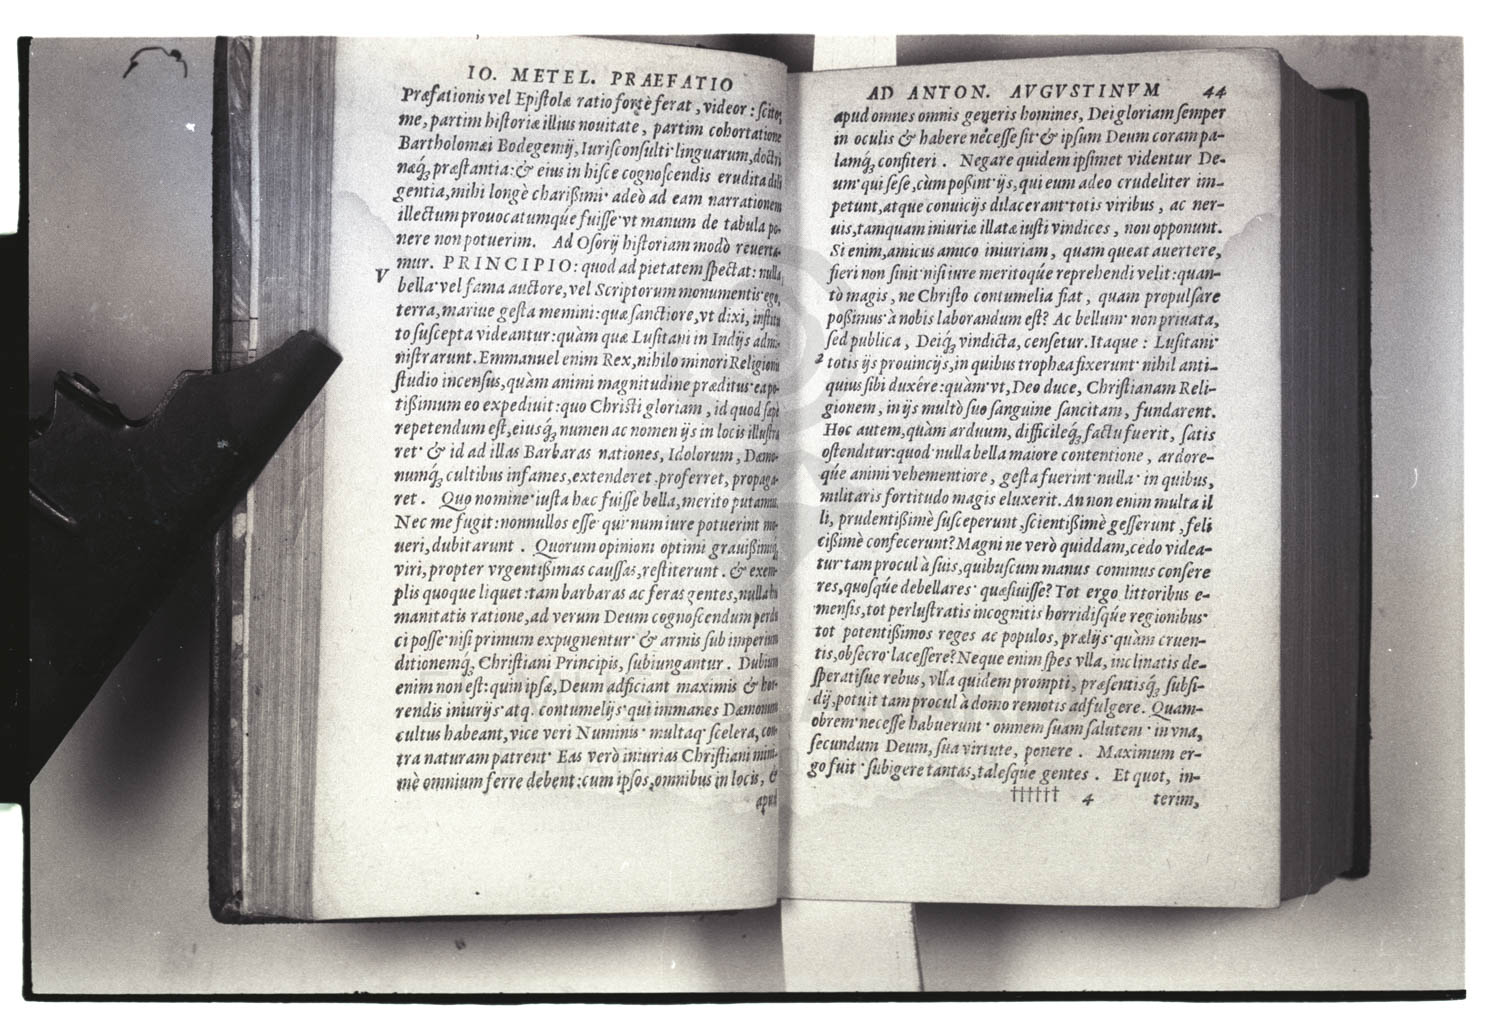 IO. METEL. PRÆFATIO
Præfationis vel Epistolæ ratio fortè ferat, videor: scito,
me, partim historiæ illius nouitate, partim cohortatione
Bartholomæi Bodegemij, Iurisconsulti linguarum, doctri
næq́; præstantia: & eius in hisce cognoscendis erudita dili
gentia, mihi longè charißimi adeò ad eam narrationem
illectum prouocatumqúe fuisse vt manum de tabula po-
nere non potuerim. Ad Osorij historiam modò reuerta-
mur. PRINCIPIO: quod ad pietatem spectat: nulla
V
bella vel fama auctore, vel Scriptorum monumentis ego,
terra, mariue gesta memini: quæ sanctiore, vt dixi, institu
to suscepta videantur: quàm quæ Lusitani in Indijs admi-
nistrarunt. Emmanuel enim Rex, nihilo minori Religionis
studio incensus, quàm animi magnitudine præditus ea po
tißimum eo expediuit: quo Christi gloriam, id quod sæpè
repetendum est, eiusq́; numen ac nomen ijs in locis illustra
ret & id ad illas Barbaras nationes, Idolorum, Dæmo-
numq́; cultibus infames, extenderet. proferret, propaga-
ret. Quo nomine iusta hæc fuisse bella, merito putamus.
Nec me fugit: nonnullos esse qui num iure potuerint mo-
ueri, dubitarunt. Quorum opinioni optimi grauißimiq́;
viri, propter vrgentißimas caussas, restiterunt. & exem-
plis quoque liquet: tam barbaras ac feras gentes, nulla hu
manitatis ratione, ad verum Deum cognoscendum perdu
ci posse nisi primum expugnentur & armis sub imperium
ditionemq́; Christiani Principis, subiungantur. Dubium
enim non est: quin ipsæ, Deum adficiant maximis & hor-
rendis iniurijs atq. contumelijs qui immanes Dæmonum
cultus habeant, vice veri Numinis multaq́ scelera, con
tra naturam patrent Eas verò iniurias Christiani mini-
mè omnium ferre debent: cum ipsos, omnibus in locis, &
apud
AD ANTON. AVGVSTINVM 44
apud omnes omnis generis homines, Dei gloriam semper
in oculis & habere necesse sit & ipsum Deum coram pa-
lamq́; confiteri. Negare quidem ipsimet videntur De-
um qui sese, cùm poßint ijs, qui eum adeo crudeliter im-
petunt, atque conuicijs dilacerant totis viribus, ac ner-
uis, tamquam iniuriæ illatæ iusti vindices, non opponunt.
Si enim, amicus amico iniuriam, quam queat auertere,
fieri non sinit nisi iure meritoqúe reprehendi velit: quan-
tò magis, ne Christo contumelia fiat, quam propulsare
poßimus à nobis laborandum est? Ac bellum non priuata,
sed publica, Deiq́; vindicta, censetur. Itaque: Lusitani
2 totis ijs prouincijs, in quibus trophæa fixerunt nihil anti-
quius sibi duxére: quàm vt, Deo duce, Christianam Reli-
gionem, in ijs multò suo sanguine sancitam, fundarent.
Hoc autem, quàm arduum, difficileq́; factu fuerit, satis
ostenditur: quod nulla bella maiore contentione, ardore-
qúe animi vehementiore, gesta fuerint nulla in quibus,
militaris fortitudo magis eluxerit. An non enim multa il
li, prudentißimè susceperunt, scientißimè gesserunt, feli
cißimè confecerunt? Magni ne verò quiddam, cedo videa-
tur tam procul à suis, quibuscum manus cominus consere
res, quosqúe debellares quæsiuisse? Tot ergo littoribus e-
mensis, tot perlustratis incognitis horridisqúe regionibus
tot potentißimos reges ac populos, prælijs quàm cruen-
tis, obsecro lacessere? Neque enim spes vlla, inclinatis de-
speratisúe rebus, vlla quidem prompti, præsentisq́; subsi-
dij, potuit tam procul à domo remotis adfulgere. Quam-
obrem necesse habuerunt omnem suam salutem in vna,
secundum Deum, sua virtute, ponere. Maximum er-
go fuit subigere tantas, talesque gentes. Et quot, in-
†††††† 4 terim,